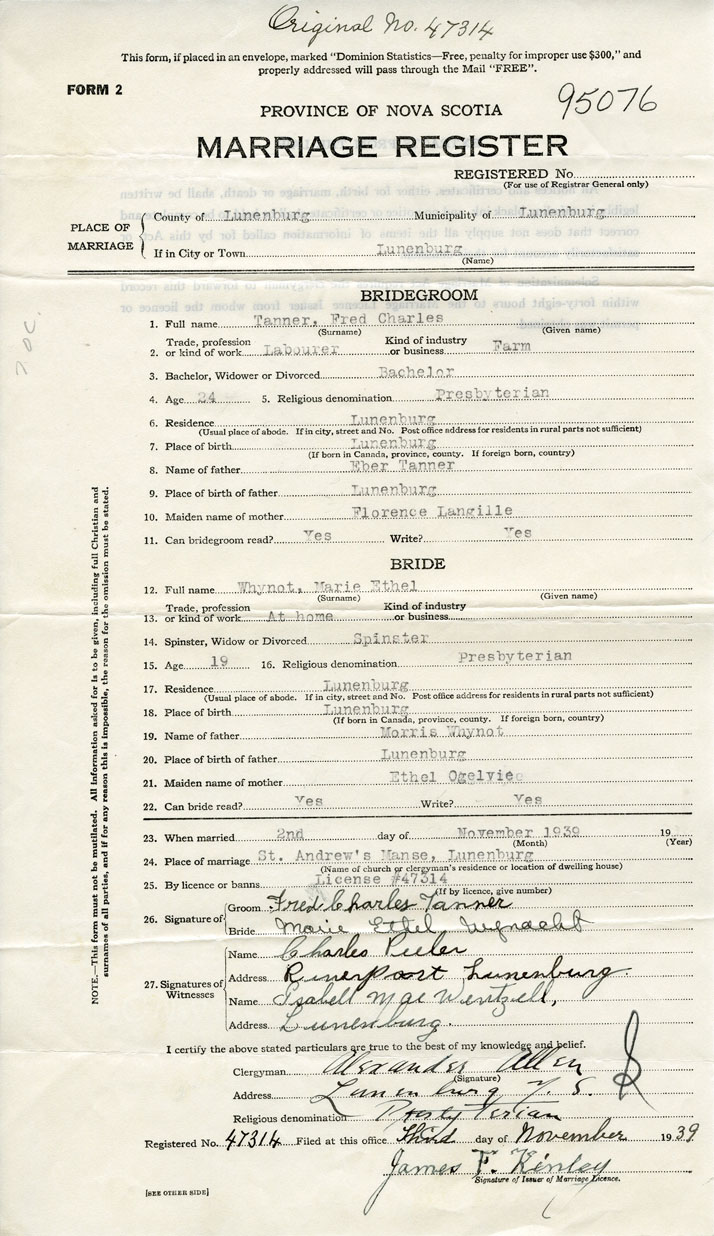 Original No. 47314
This form, if placed in an envelope, marked "Dominion Statistics—Free, penalty for improper use $300," and
properly addressed will pass through the Mail "FREE".
FORM 2
95076
PROVINCE OF NOVA SCOTIA
MARRIAGE REGISTER
REGISTERED No.
(For use of Registrar General only)
PLACE OF MARRIAGE
County of Lunenburg Municipality of Lunenburg
If in City or Town Lunenburg
(Name)
BRIDEGROOM
1. Full name Tanner, Fred Charles
(Surname) (Given name)
2. Trade, profession or kind of work Labourer Kind of industry or business Farm
3. Bachelor, Widower or Divorced Bachelor
4. Age 24 5. Religious denomination Presbyterian
6. Residence Lunenburg
(Usual place of abode. If in city, street and No. Post office address for residents in rural parts not sufficient)
7. Place of birth Lunenburg
(If born in Canada, province, county. If foreign born, country)
8. Name of father Eber Tanner
9. Place of birth of father Lunenburg
10. Maiden name of mother Florence Langille
11. Can bridegroom read? Yes Write? Yes
BRIDE
12. Full name Whynot, Marie Ethel
(Surname) (Given name)
13. Trade, profession or kind of work At home Kind of industry or business
14. Spinster, Widow or Divorced Spinster
15. Age 19 16. Religious denomination Presbyterian
17. Residence Lunenburg
(Usual place of abode. If in city, street and No. Post office address for residents in rural parts not sufficient)
18. Place of birth Lunenburg
(If born in Canada, province, county. If foreign born, country)
19. Name of father Morris Whynot
20. Place of birth of father Lunenburg
21. Maiden name of mother Ethel Ogelvie
22. Can bride read? Yes Write? Yes
23. When married 2nd day of November 1939 19
(Month) (Year)
24. Place of marriage St. Andrew's Manse, Lunenburg
(Name of church or clergyman's residence or location of dwelling house)
25. By licence or banns License #47314
(If by licence, give number)
26. Signature of
Groom Fred Charles Tanner
Bride Marie Ethel Wynacht
27. Signatures of Witnesses
Name Charles
Address Lunenburg
Name Isabell Mae Wentzell,
Address Lunenburg.
I certify the above stated particulars are true to the best of my knowledge and belief.
Clergyman Alexander Allen
(Signature)
Address Lunenburg N. S.
Religious denomination Presbyterian
Registered No. 47314 Filed at this office third day of November 1939
James F. Kinley
Signature of Issuer of Marriage Licence.
[SEE OTHER SIDE]
NOTE.—This form must not be mutilated. All information asked for is to be given, including full Christian and
surnames of all parties, and if for any reason this is impossible, the reason for the omission must be stated.